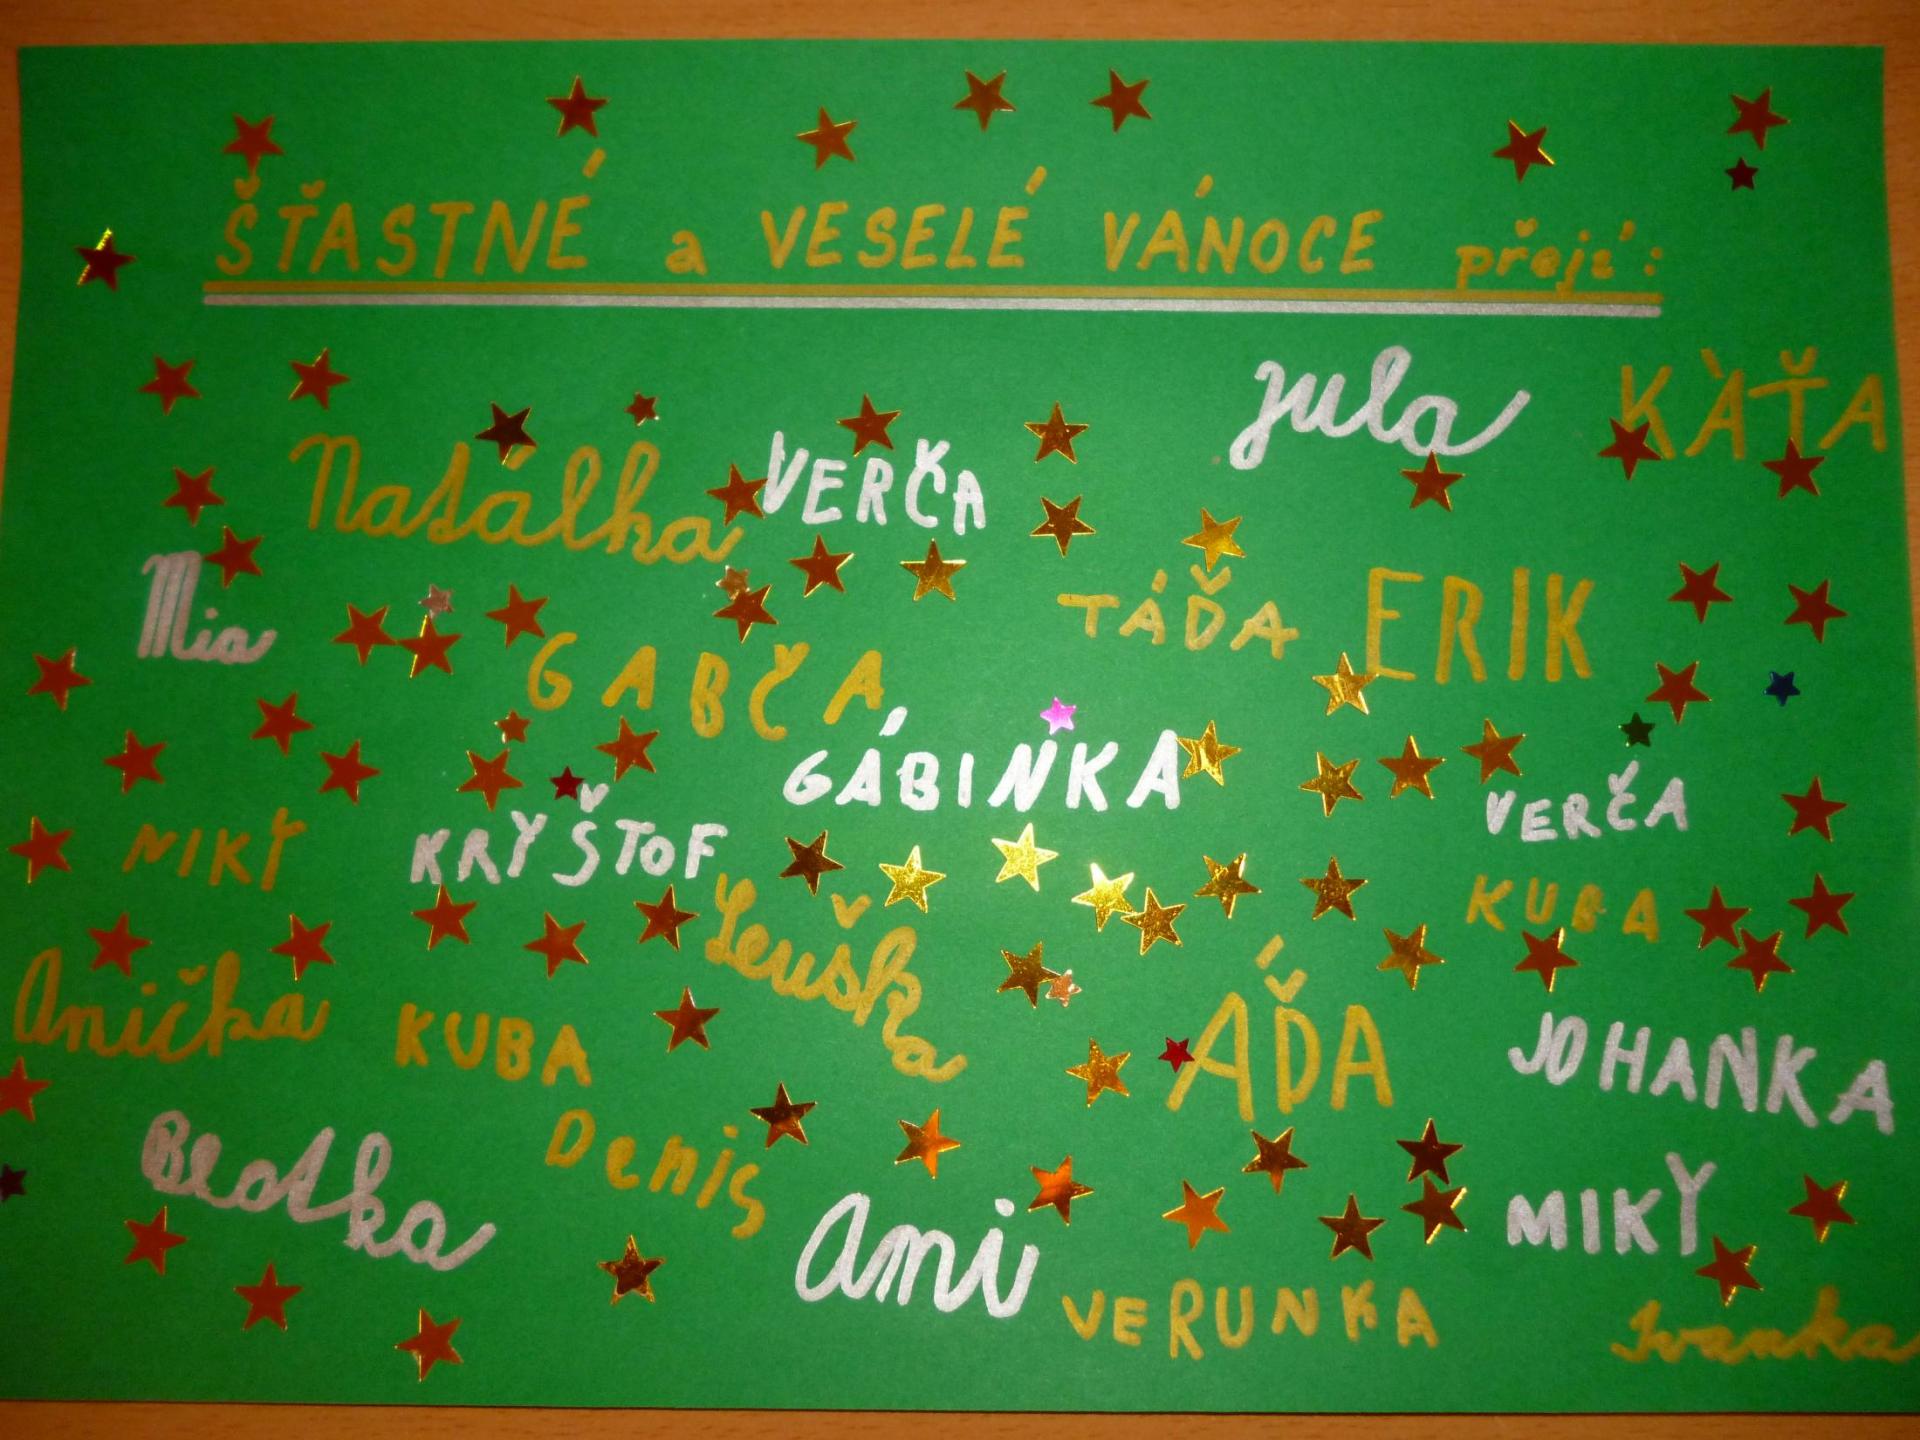 ŠŤASTNÉ a VESELÉ VÁNOCE přejí:
Jula KÀŤA
Natálka VERČA
Mia TÁĎA ERIK
GABČA
GÁBINKA
NIKY KRYŠTOF VERČA
KUBA
Leuška
Anička KUBA ÁĎA JOHANKA
Beatka Denis
Ami MIKY
VERUNKA Ivanka